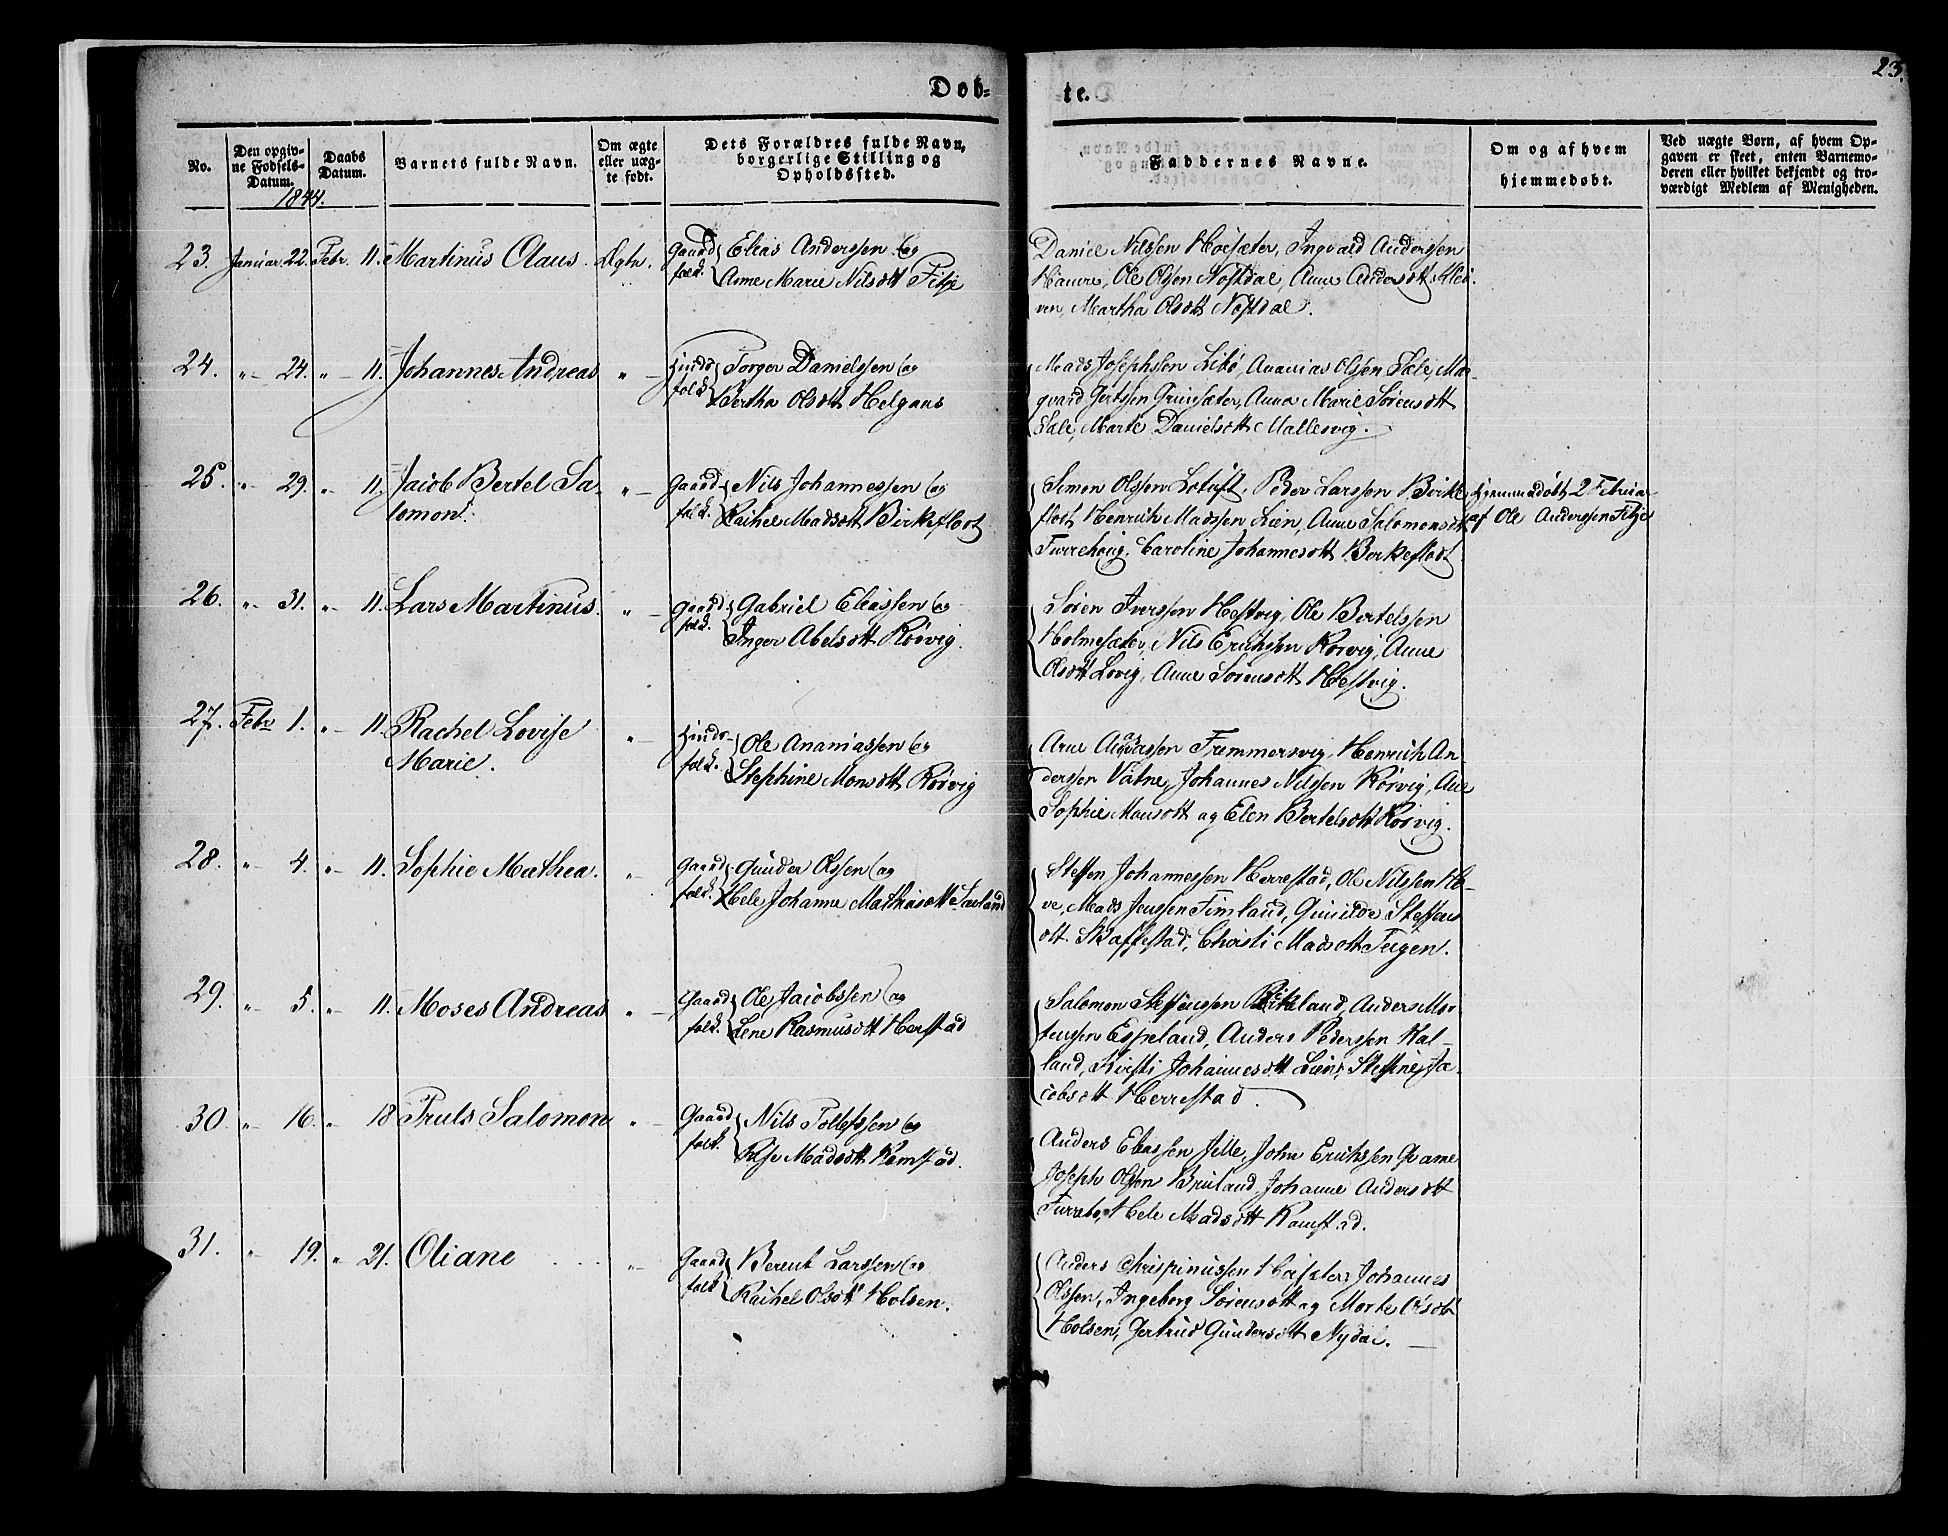 23.
Døb-
te.
No.
Den opgiv-
ne Fødsels-
Datum.
Daabs
Datum.
1844.
Barnets fulde Navn.
Om ægte
eller uæg-
te født.
Dets Forældres fulde Navn,
borgerlige Stilling og
Opholdssted.
Faddernes Navne.
Om og af hvem
hjemmedøbt.
Ved uægte Børn, af hvem Op-
gaven er skeet, enten Barnemo-
deren eller hvilket bekjendt og tro-
værdigt Medlem af Menigheden.
23. Januar 22. Febr. 11. Martinus Olaus. Ægte.
Gaard
folk.
Elias Anderssen og
Anne Marie Nilsdtt Fitje
Daniel Nilssen Hoesæter, Ingvald Anderssen
Hauvre, Ole Olssen Nøstdal, Anne Andersdtt
ven, Martha Olsdtt Nøstdal.
24. "- 24. "- 11. Johannes Andreas "-
Huus
folk
Torger Danielssen og
Bertha Olsdtt Helgaas
Mads Josephsen Libø, Ananias Olssen Sæle, Mar-
qvard Gertssen Grimsæter, Anna Marie Sørensdtt
Sæle, Marte Danielsdtt Mallesvig.
25. "- 29. "- 11. Jacob Bertel Sa-
lomon. "-
Gaard-
folk.
Nils Johannessen og
Rachel Madsdtt Birkeflot
Simon Olssen Lotuft, Peder Larssen Birke
flot Henrich Madssen Lien, Anne Salomonsdtt
Furrehaug, Caroline Johannesdtt Birkeflot
Hjemmedøbt 2 Februar
af Ole Anderssen Fitje
26. "- 31. "- 11. Lars Martinus. "-
Gaard
folk.
Gabriel Eliassen og
Inger Abelsdtt Rørvig.
Søren Iverssen Hestvig, Ole Bertelssen
Holmesæter, Nils Erichssen Rørvig, Anne
Olsdtt Lovig, Anne Sørensdtt Hestvig.
27. Febr 1. "- 11. Rachel Lovise
Marie. "-
Huus-
folk.
Ole Ananiassen og
Stephine Monsdtt Rørvig
Arne Fremmersvig, Henrich An-
derssen Vatne, Johannes Nilssen Rørvig, Ane
Sophie Monsdtt og Elen Bertelsdtt Rørvig.
28. "- 4. "- 11. Sophie Mathea. "-
Gaard
folk.
Gunder Olssen og
Hele Johanne Mathiasdtt Sæland
Steffen Johannessen Herrestad, Ole Nilssen Ho-
ve, Mads Jenssen Timland, Gunilde Steffens
dtt Skaffestad, Christi Madsdtt Teigen.
29. "- 5. "- 11. Moses Andreas "-
Gaard
folk.
Ole Jacobssen og
Lene Rasmusdtt Herstad
Salomon Steffenssen Birkeland, Anders Mor-
tenssen Espeland, Anders Pederssen Hal-
land, Kirsti Johannesdtt Lien, Steffine Ja-
cobsdtt Herrestad.
30. "- 16. "- 18 Truls Salomon "-
Gaard
folk.
Nils Tollefssen og
Madsdtt Ramstad.
Anders Eliassen Jelle, John Erichssen Qvame
Joseph Olssen Bruland, Johanne Andersdtt
Hele Madsdtt Ramstad.
31. "- 19. "- 21. Oliane "-
Gaard
folk
Berent Larssen og
Rachel Olsdtt Holsen.
Anders Chrispinussen Hoesæter, Johannes
Olssen, Ingeborg Sørensdtt og Morte Olsdtt
Holsen, Gertrud Gundersdtt Nydal.